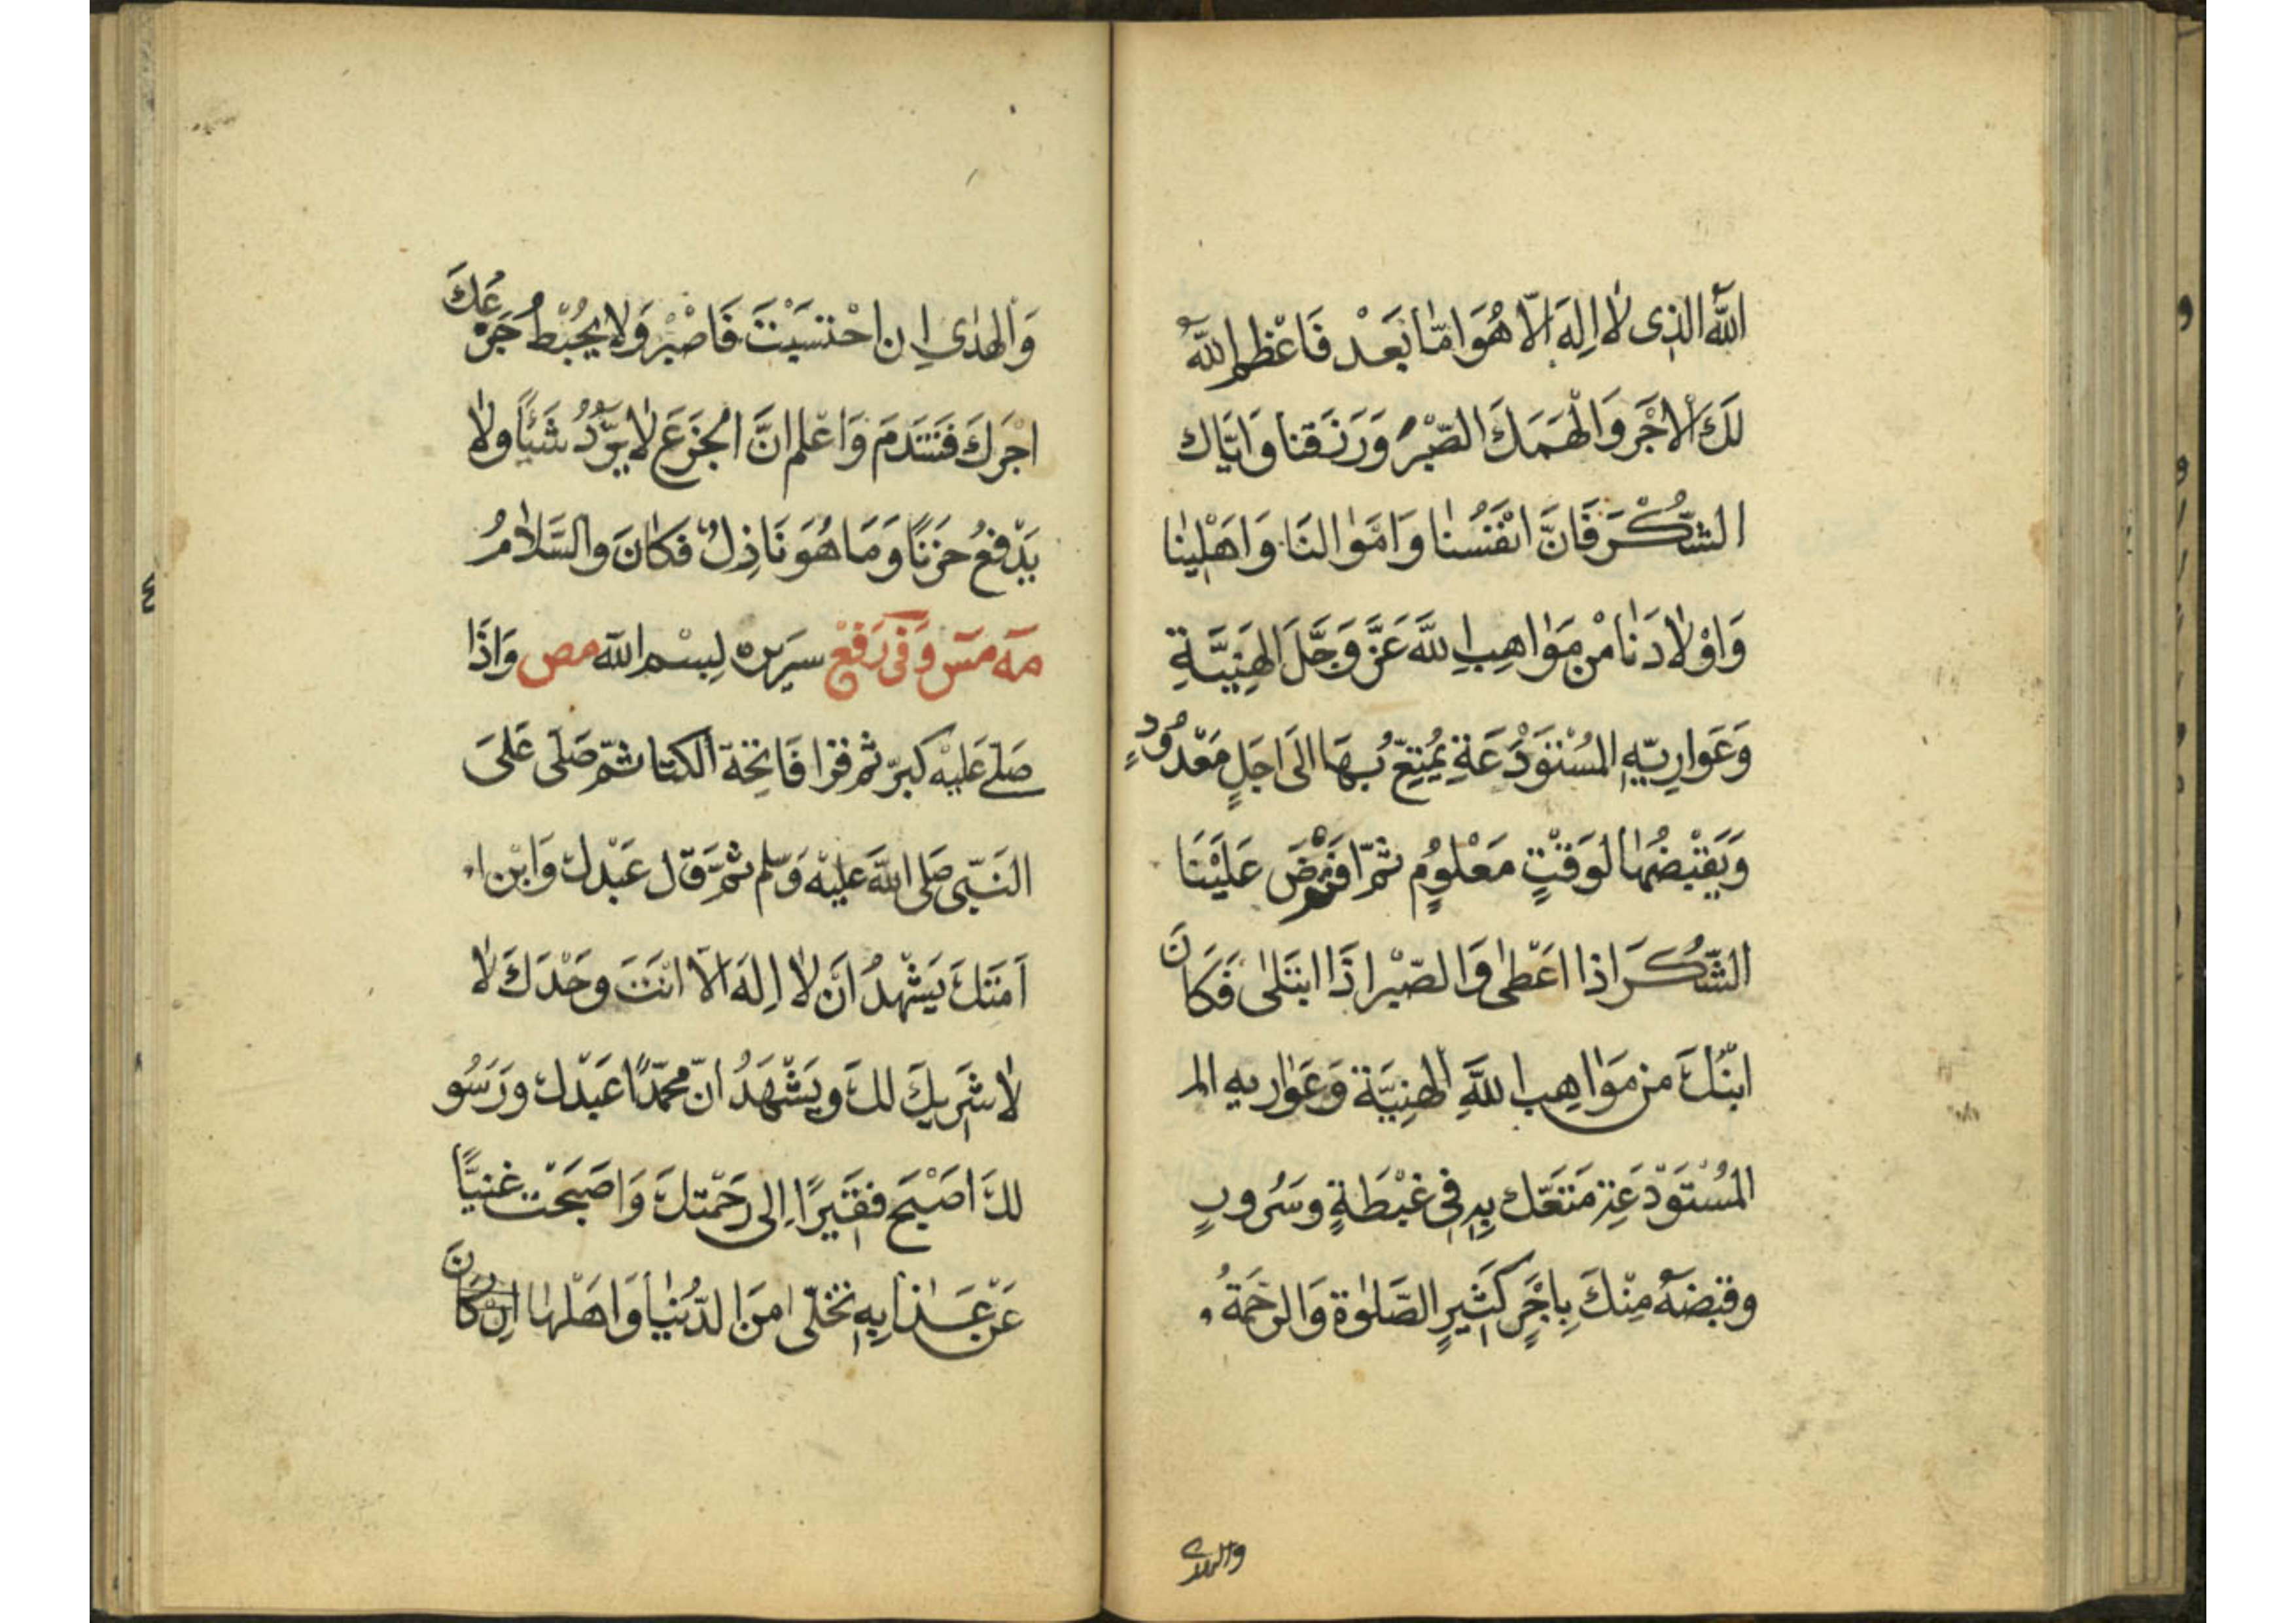 اللّٰه الذى لا اِلهَ الّا هُوَ امّا بَعَدْ فَاعْظم اللّٰهُ
لَكَ الْاجْرَ وَالْهَمَكَ الصّبْرُ وَرَزَقنا وَايّاك
الشّكْرَ فَانَّ انْفَسُنا وَامَوالنَا وَاهَلْينا
وَاوْلادَنا مْن مَوَاهِبِ اللّٰه عَزَّ وَجَّلَ الهَنِيَّةِ
وَعَوارِيّهِ المسُتَوَدْعَةِ يُمَتِّعُ بُهَا الَى اجَلٍ مَعْدُودٍ
وَيَقبْضُها لوَقتْتٍ مَعْلوُمٍ ثمّ افتَرْضَ عَلَيْنَا
الشّكُرَ اذا اعَطْى وَالصّبْرَ اذَا ابتَلى فَكَانَ
ابنْكَ من مَوَاهِبِ اللّٰهِ الهنِيَّة وَعَوٰاريه الم
المسُتَوَدْعَةِ مَتَعّك بِه فى غبْطَةٍ وسَرُورٍ
وقبَضَهُ مِنْكَ بِاجْرٍ كَثيرٍ الصّلوة وَالرحْمَةُ و
والهدى
وَالهدٰى اِن احْتسَبْتَ فَاصْبرْ وَلا يُحْبْطُ جَزَعُكَ
اجْرَكَ فتَنَدَمَ وَاعْلم انَّ الجزَعَ لا يرُدُّ شَيْئًا ولا
يَدْفعُ حَزنًا وَمَا هُوَ نَازِلٌ فكَانَ والسَّلامُ
مه مس وَفى رَفعْ سرَيره لِبسْم اللّٰه مص وَاذَا
صَلّى عَليْه كبرّ ثم قرَا فَاتِحَة الكتا ثمّ صَلى عَلىَ
النَبّى صَلى اللّٰه عَليْه وَسّلم ثمّ قَال عَبْدك وَابْن ا
اَمَتِكَ يَشْهدُ انَ لا اِلهَ الّا انتَ وحَدْكَ لا
لا شَريكَ لكَ ويَشْهَدُ انّ محمّدًا عَبدْك ورَسُو
لكَ اصَبْحَ فقَيرًا اِلى رَحَمْتكَ وَاصَبحَتْ غنيًّا
عَن عَذابِهِ تخَلّى مِنَ الدّنُيا وَاهَلْها اِن كانَ